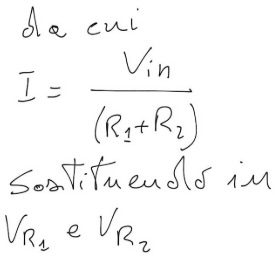 da cui
I = Vin / (R1+R2)
Sostituendo in
VR1 e VR2